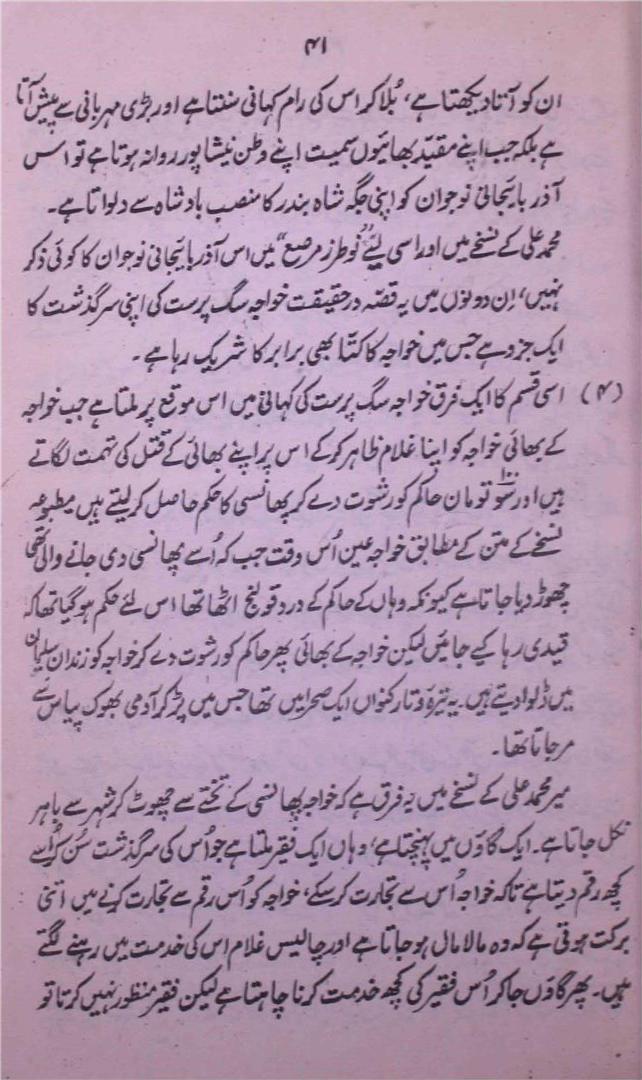 ۴۱
ان کو آتا دیکھتا ہے، بُلا کر اس کی رام کہانی سنتا ہے اور بڑی مہربانی سے پیش آتا
ہے بلکہ جب اپنے مقیّد بھائیوں سمیت اپنے وطن نیشا پور روانہ ہوتا ہے تو اس
آذر بایئجانی نوجوان کو اپنی جگہ شاہ بندر کا منصب بادشاہ سے دلواتا ہے۔
محمد علی کے نسخے میں اور اسی لیئے "نو طرز مرصع" میں اس آذر بایئجانی نوجوان کا کوئی ذکر
نہیں، اِن دونوں میں یہ قصّہ درحقیقت خواجہ سگ پرست کی اپنی سرگذشت کا
ایک جزو ہے جس میں خواجہ کا کتّا بھی برابر کا شریک رہا ہے۔
(۴) اسی قسم کا ایک فرق خواجہ سگ پرست کی کہانی میں اس موقع پر ملتا ہے جب خواجہ
کے بھائی خواجہ کو اپنا غلام ظاہر کر کے اس پر اپنے بھائی کے قتل کی تہمت لگاتے
ہیں اور سَو ۱۰۰ تومان حاکم کو رشوت دے کر پھانسی کا حکم حاصل کر لیتے ہیں مطبوعہ
نسخے کے متن کے مطابق خواجہ عین اُس وقت جب کہ اُسے پھانسی دی جانے والی تھی
چھوڑ دیا جاتا ہے کیونکہ وہاں کے حاکم کے درد قولنج اٹھا تھا اس لئے حکم ہو گیا تھا کہ
قیدی رہا کیے جائیں لیکن خواجہ کے بھائی پھر حاکم کو رشوت دے کر خواجہ کو زندان سلیمان
میں ڈلوا دیتے ہیں۔ یہ تیرہ و تار کنواں ایک صحرا میں تھا جس میں پڑ کر آدمی بھوک پیاس سے
مر جاتا تھا۔
میر محمد علی کے نسخے میں یہ فرق ہے کہ خواجہ پھانسی کے تختے سے چھوٹ کر شہر سے باہر
نکل جاتا ہے۔ ایک گاؤں میں پہنچتا ہے، وہاں ایک فقیر ملتا ہے جو اُس کی سرگذشت سُن کر اُسے
کچھ رقم دیتا ہے تاکہ خواجہ اُس سے تجارت کر سکے، خواجہ کو اُس رقم سے تجارت کرنے میں اتنی
برکت ہوتی ہے کہ وہ مالا مال ہو جاتا ہے اور چالیس غلام اس کی خدمت میں رہنے لگتے
ہیں۔ پھر گاؤں جا کر اُس فقیر کی کچھ خدمت کرنا چاہتا ہے لیکن فقیر منظور نہیں کرتا تو